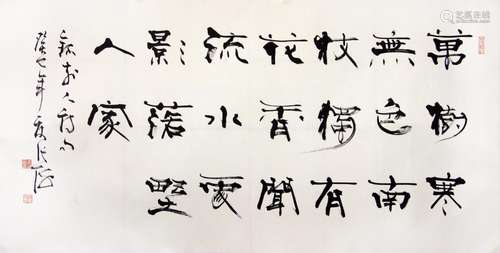 萬樹寒
無色南
枝獨有
花香聞
流水處
影落野
人家
人詩句
癸巳年夏